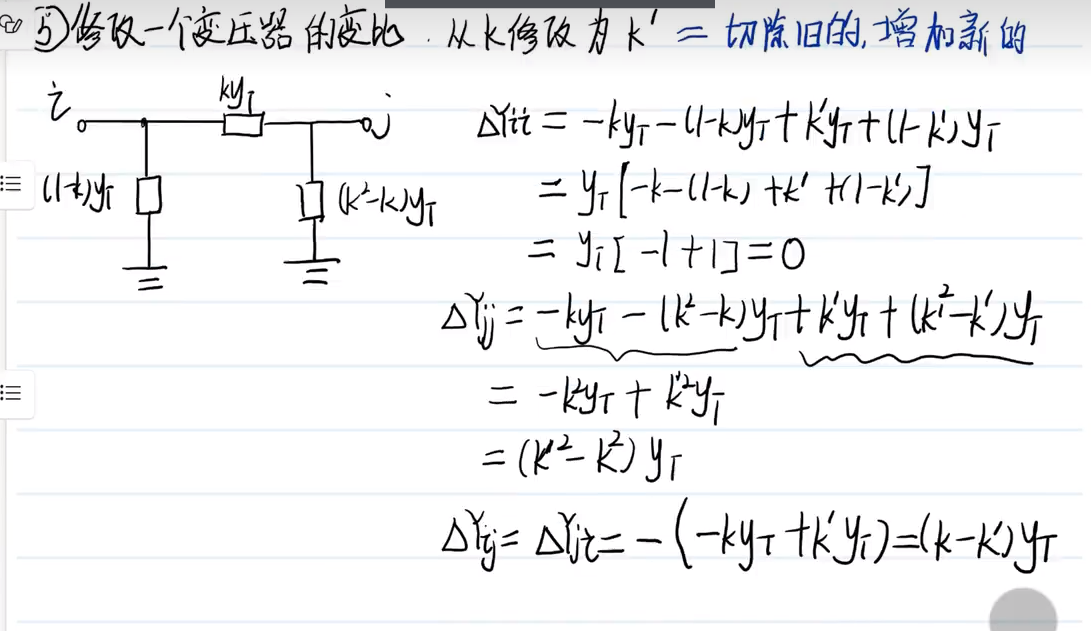 ⑤修改一个变压器的变比.从k修改为k' = 切除旧的,增加新的
i kyT j
(1-k)yT (k²-k)yT
ΔYii = -kyT-(1-k)yT+k'yT+(1-k')yT
= yT[-k-(1-k)+k'+(1-k')]
= yT[-1+1]=0
ΔYjj = -kyT-(k²-k)yT+k'yT+(k'²-k')yT
= -k²yT+k'²yT
= (k'²-k²)yT
ΔYij = ΔYji = -(-kyT+k'yT)=(k-k')yT